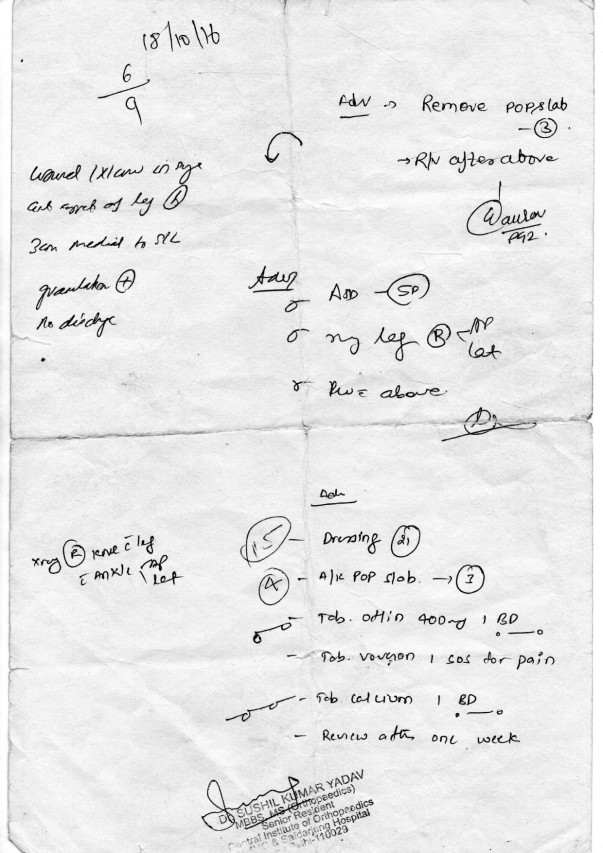 18/10/16
6
9
Adv → Remove POP slab
- 3
→ R/V after above
PG2.
wound 1x1cm in
aspect of leg
3cm medial to
granulation +
No
Adv
ASD - 
leg R AP
Lat
above
Adv
15 - Dressing 21
4 - A/K POP slab. → 3
- Tab. oflin 400mg 1 BD
- Tab. voveron 1 SOS for pain
- Tab. calcium 1 BD
- Review after one week
xray R knee c̄ leg
c̄ Ankle AP
Lat
DR SUSHIL KUMAR YADAV
MBBS, MS (Orthopaedics)
Senior Resident
Central Institute of Orthopaedics
& Safdarjung Hospital
Delhi-110029